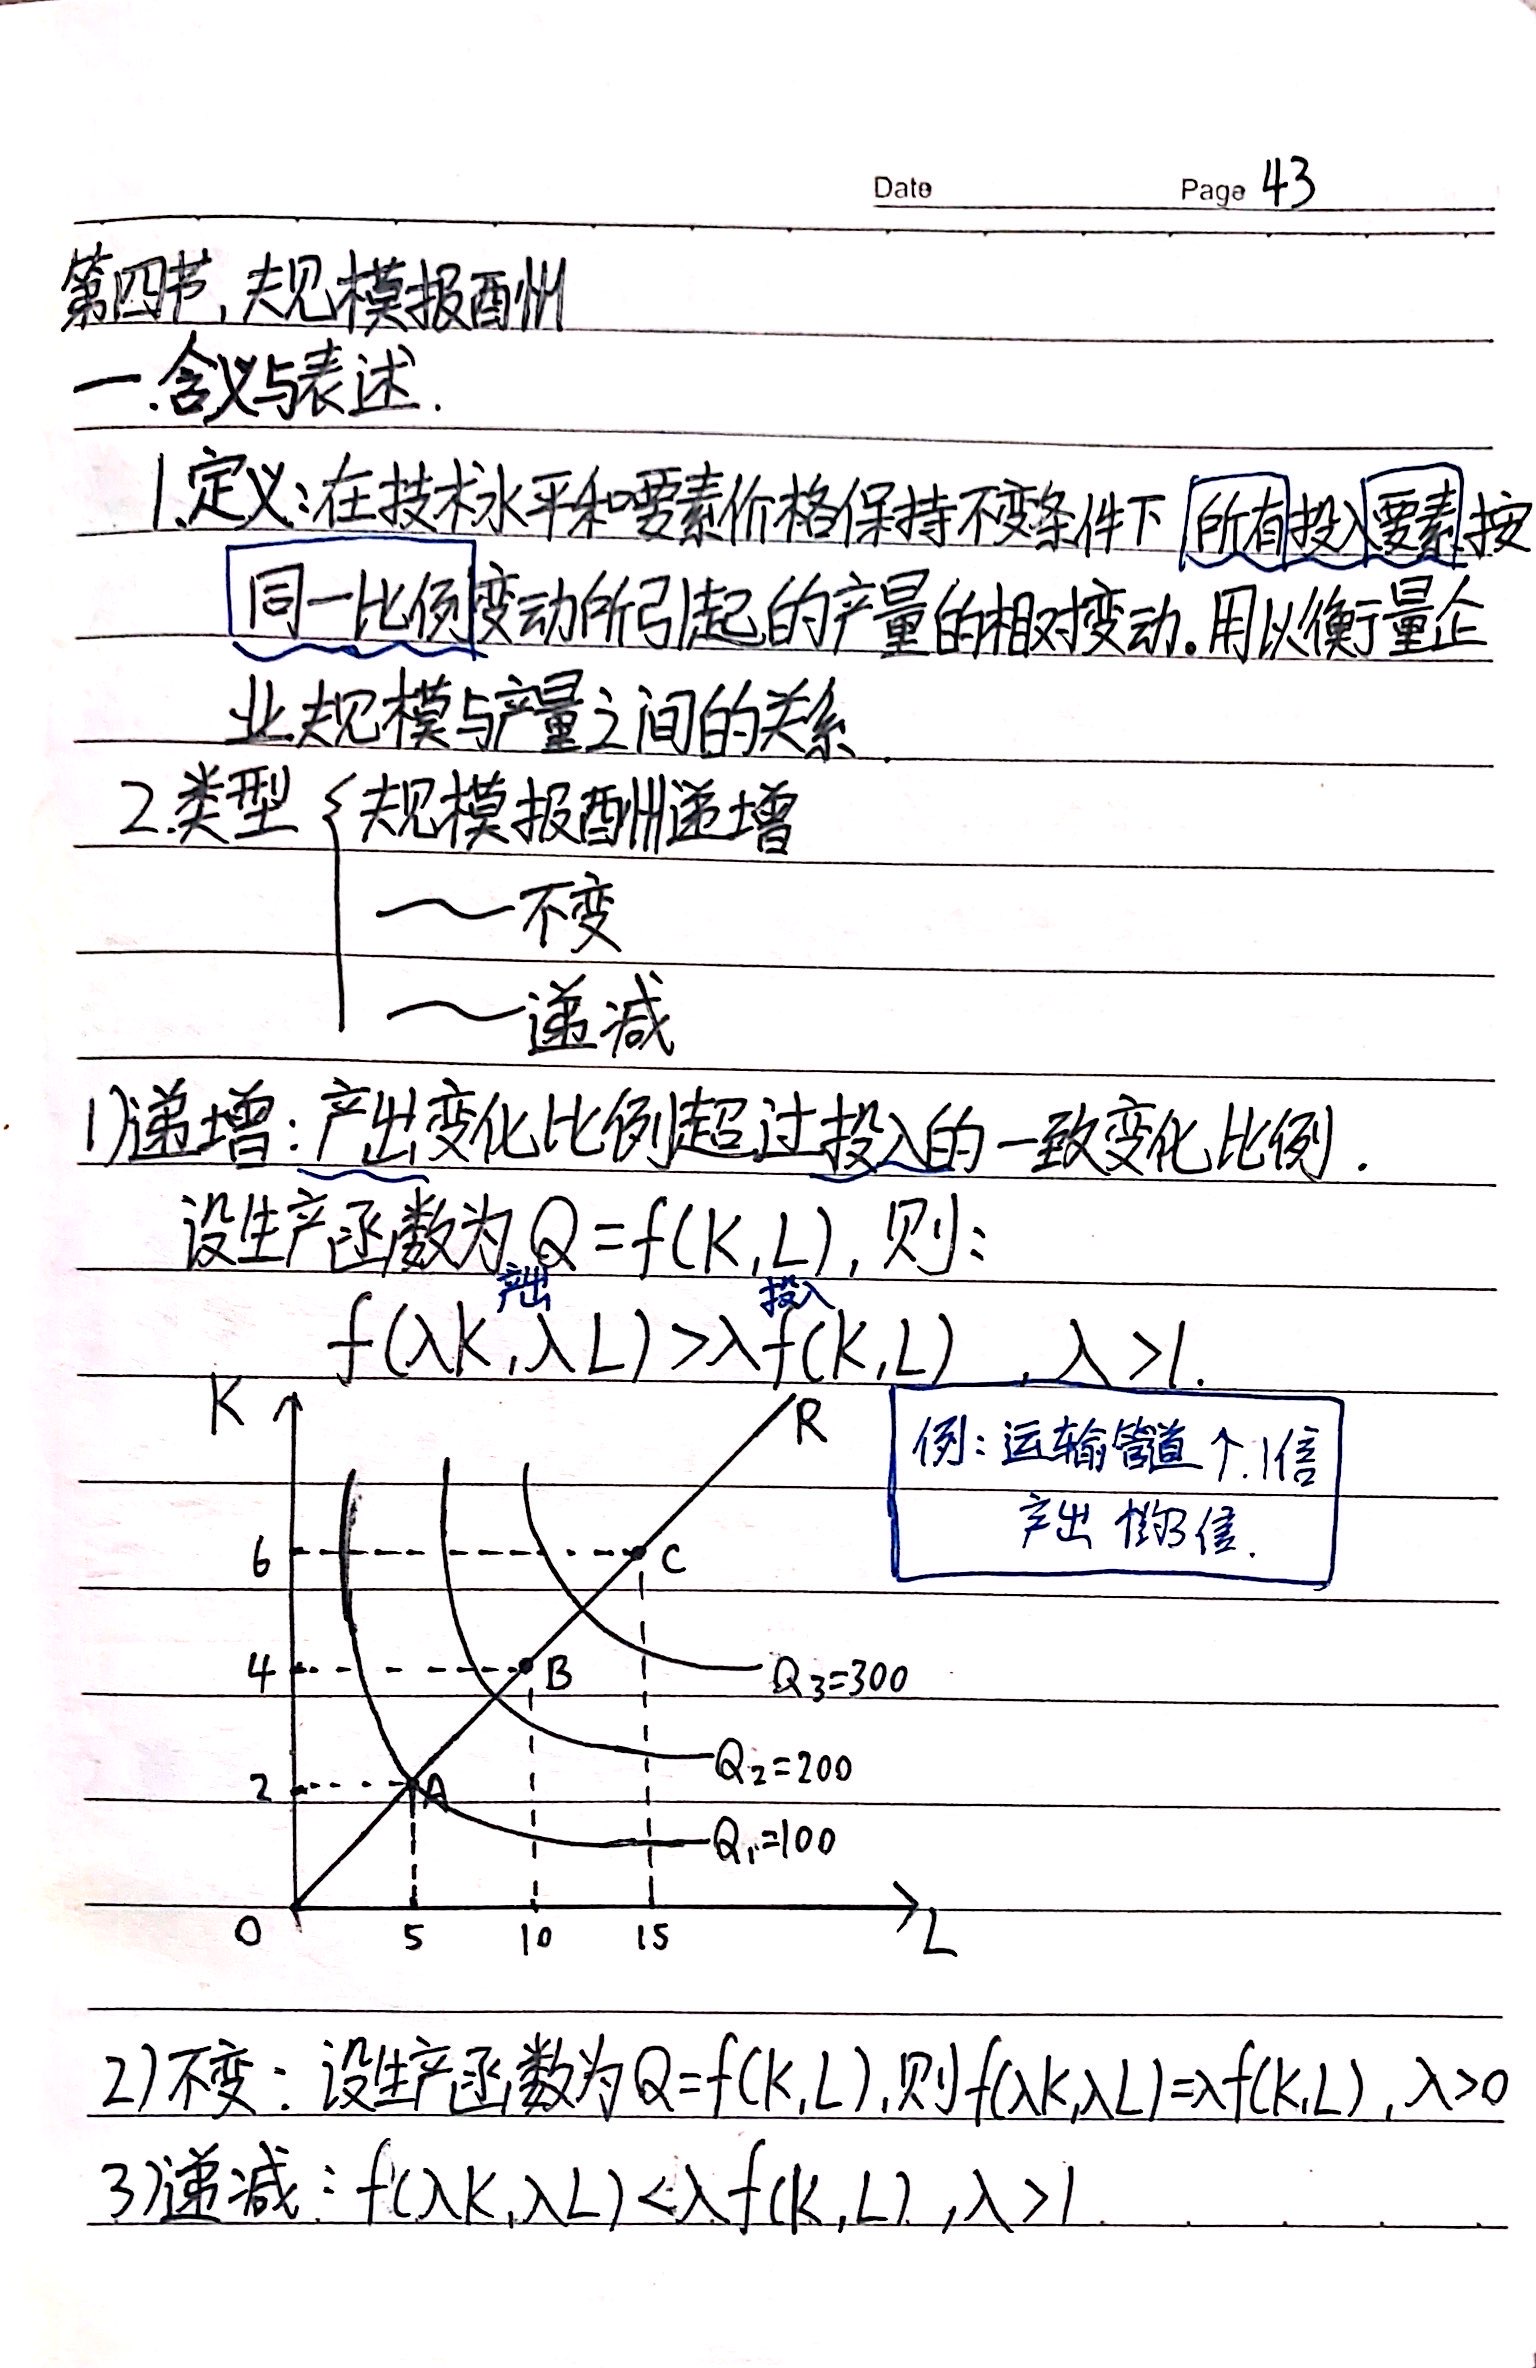 Date Page 43
第四节,规模报酬
一.含义与表述.
1.定义:在技术水平和要素价格保持不变条件下 所有投入要素按
同一比例变动所引起的产量的相对变动。用以衡量企
业规模与产量之间的关系.
2.类型 { 规模报酬递增
～不变
～递减
1)递增:产出变化比例超过投入的一致变化比例.
设生产函数为Q=f(K,L),则:
产出 投入
f(λK,λL)>λf(K,L) , λ>1.
K R
例:运输管道↑1倍
产出 ↑3倍.
6 C
4 B
Q3=300
2 A
Q2=200
Q1=100
O 5 10 15 L
2)不变:设生产函数为Q=f(K,L),则f(λK,λL)=λf(K,L),λ>0
3)递减:f(λK,λL)<λf(K,L),λ>1